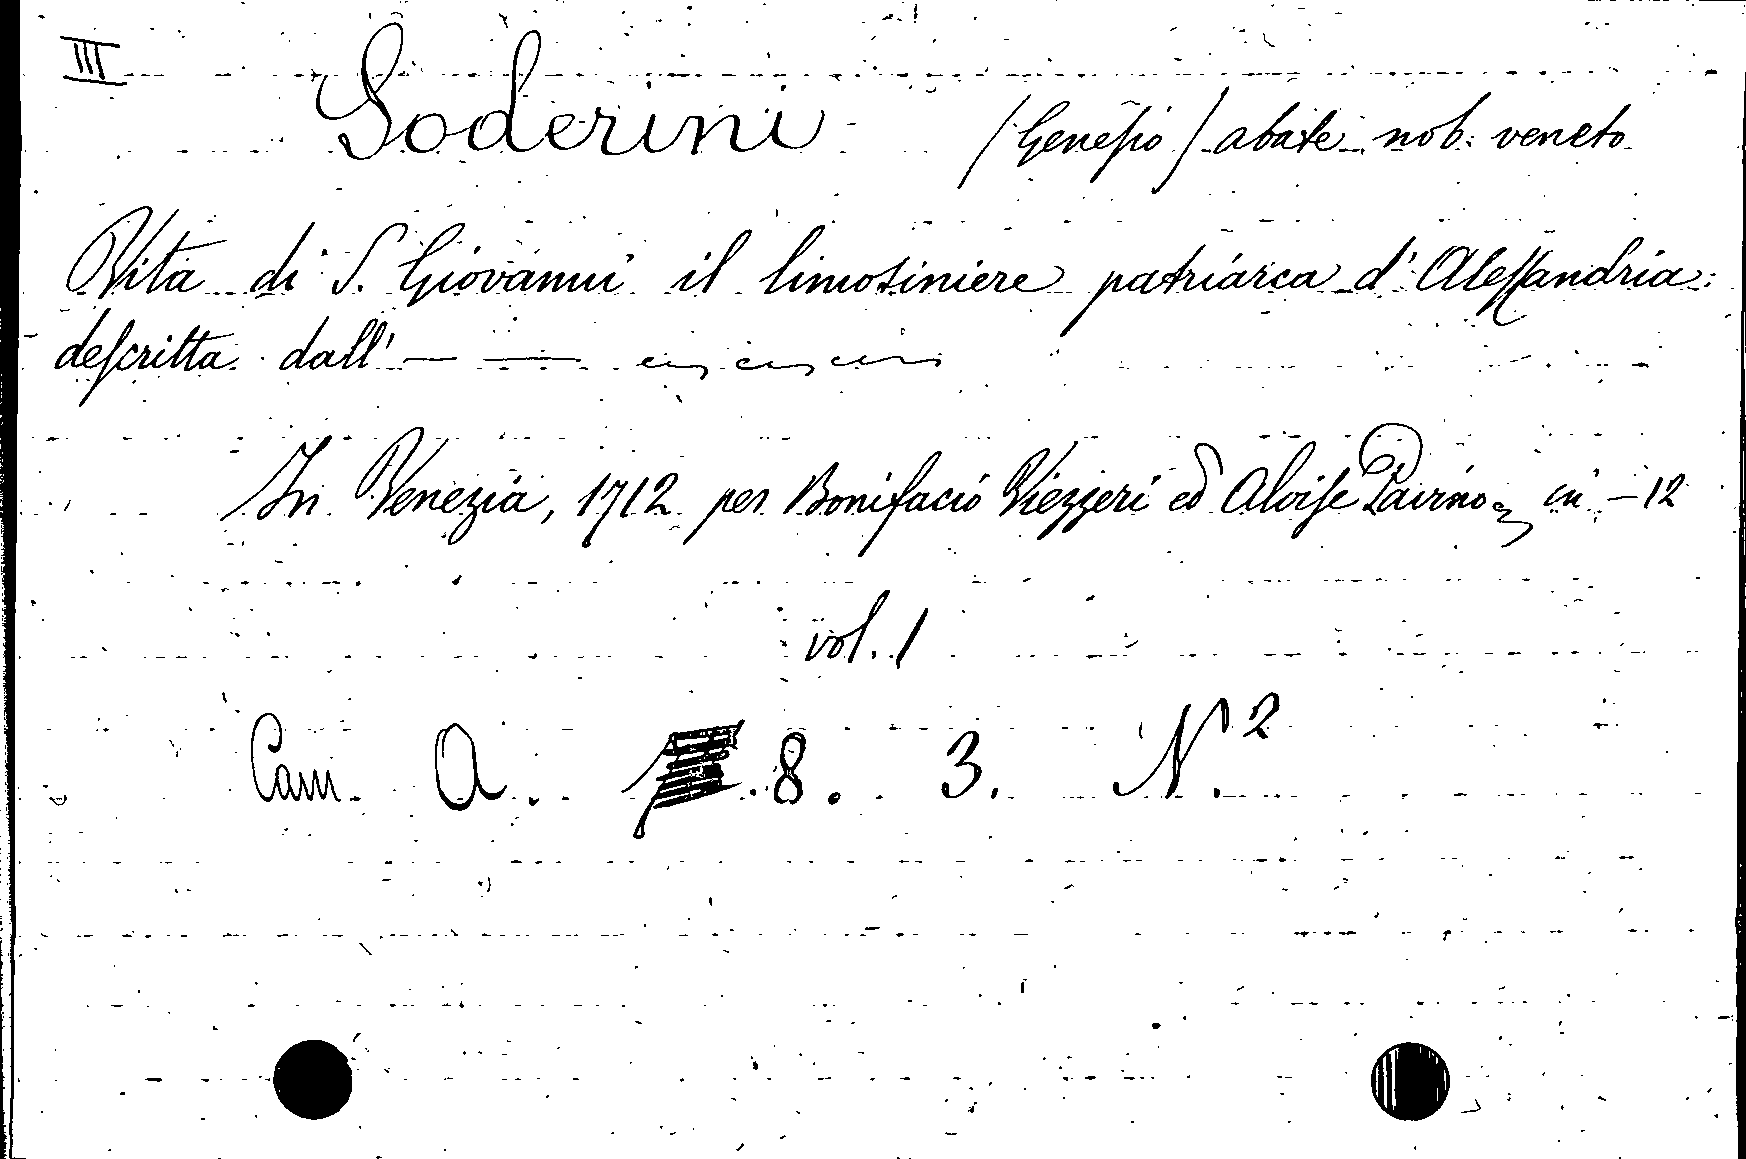 III
Soderini (Genesio) abate nob: veneto
Vita di S. Giovanni il limosiniere patriarca d'Alessandria:
descritta dall' — —
In Venezia, 1712 per Bonifacio Viezzeri ed Aloise Pavino, in - 12
vol. 1
Cam. A. 8. 3. N.2